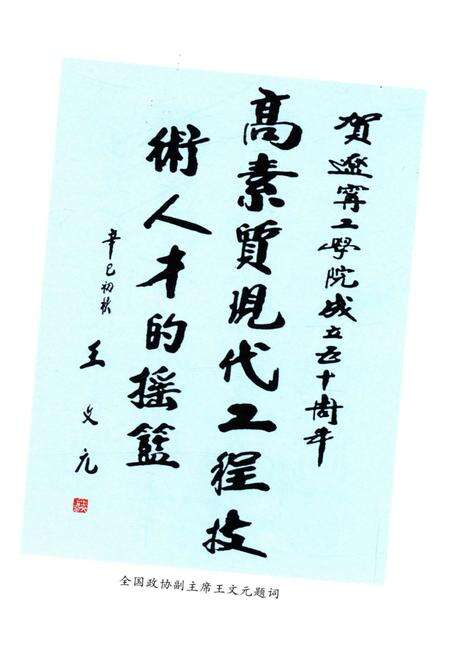 賀遼寧工學院成立五十周年
高素質現代工程技
術人才的搖籃
辛巳初秋
王文元
全国政协副主席王文元题词